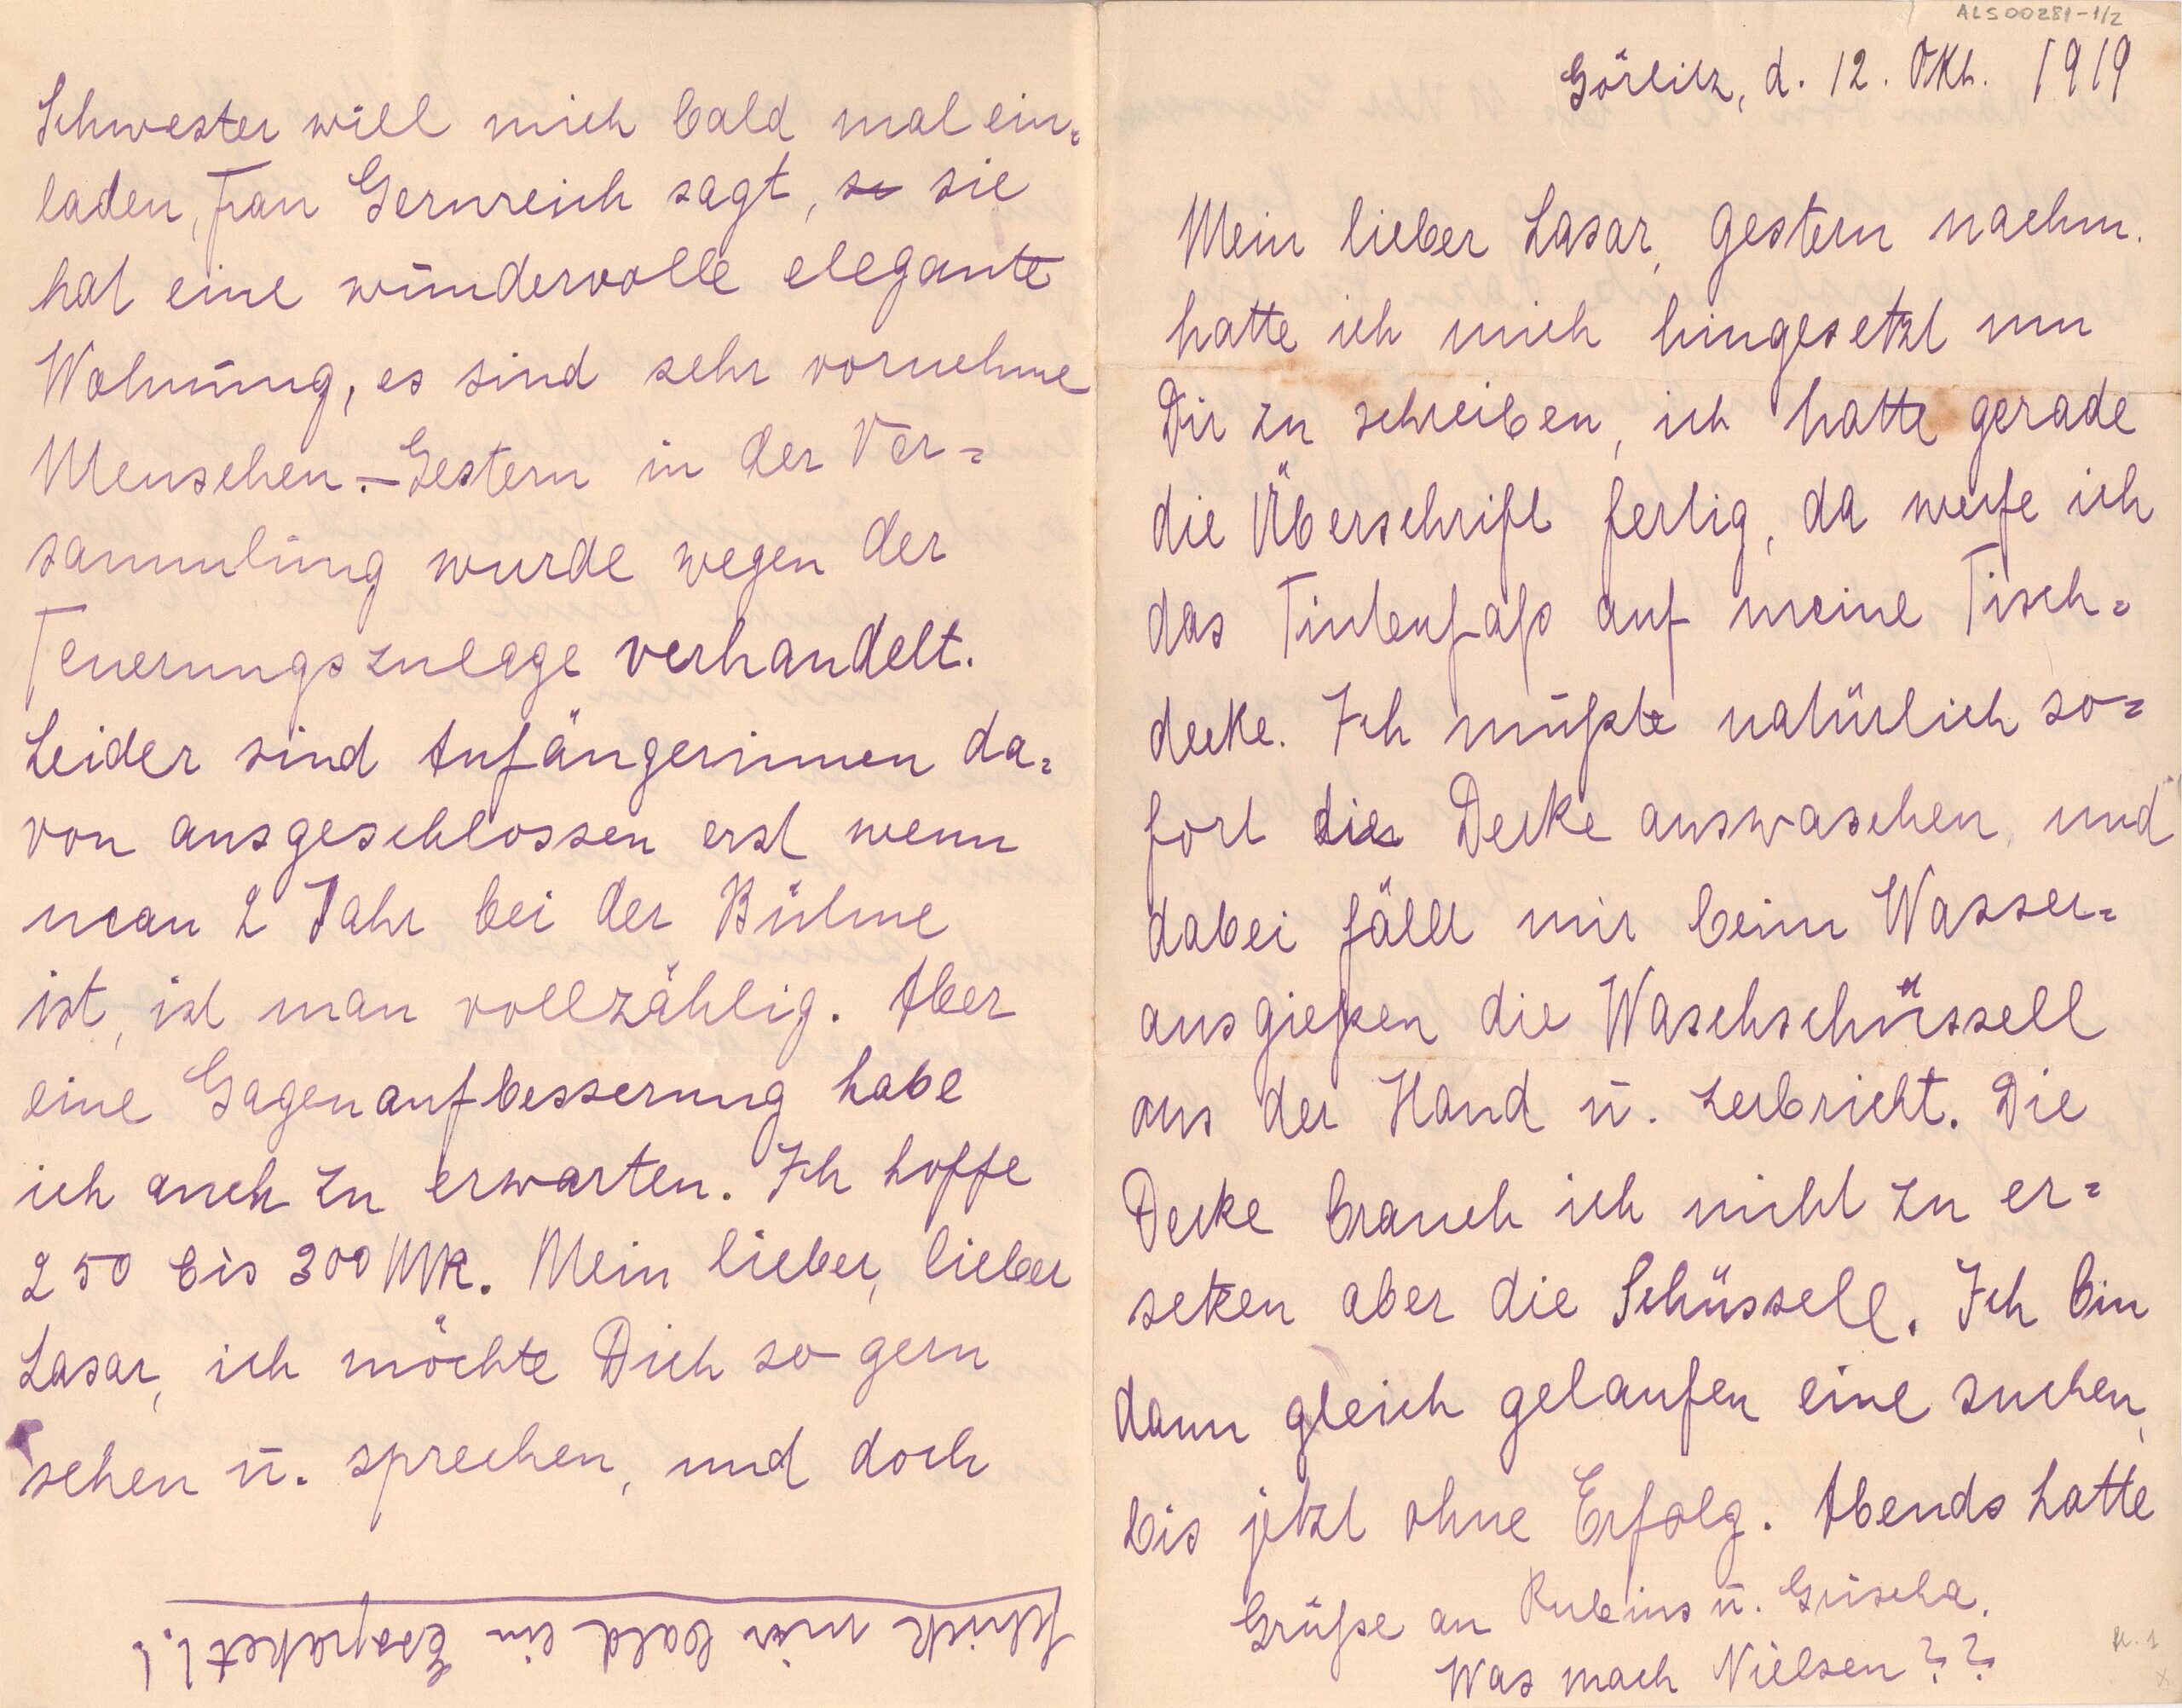 ALS00281-1/2
Görlitz, d. 12. Okt. 1919
Mein lieber Lasar, gestern nachm.
hatte ich mich hingesetzt um
Dir zu schreiben, ich hatte gerade
die Überschrift fertig, da werfe ich
das Tintenfaß auf meine Tisch=
decke. Ich mußte natürlich so=
fort die Decke auswaschen, und
dabei fällt mir beim Wasser=
ausgießen die Waschschüssell
aus der Hand u. zerbricht. Die
Decke brauch ich nicht zu er=
setzen aber die Schüssell. Ich bin
dann gleich gelaufen eine suchen,
bis jetzt ohne Erfolg. Abends hatte
Grüße an Rubins u. Grischa.
Was mach Nielsen??
Schwester will mich bald mal ein=
laden, Frau Gernreich sagt, se sie
hat eine wundervolle elegante
Wohnung, es sind sehr vornehme
Menschen. – Gestern in der Ver=
sammlung wurde wegen der
Teuerungszulage verhandelt.
Leider sind Anfängerinnen da=
von ausgeschlossen erst wenn
man 2 Jahr bei der Bühne
ist, ist man vollzählig. Aber
eine Gagenaufbesserung habe
ich auch zu erwarten. Ich hoffe
250 bis 300 Mk. Mein lieber, lieber
Lasar, ich möchte Dich so gern
sehen u. sprechen, und doch
Schick mir bald ein Esspaket!!